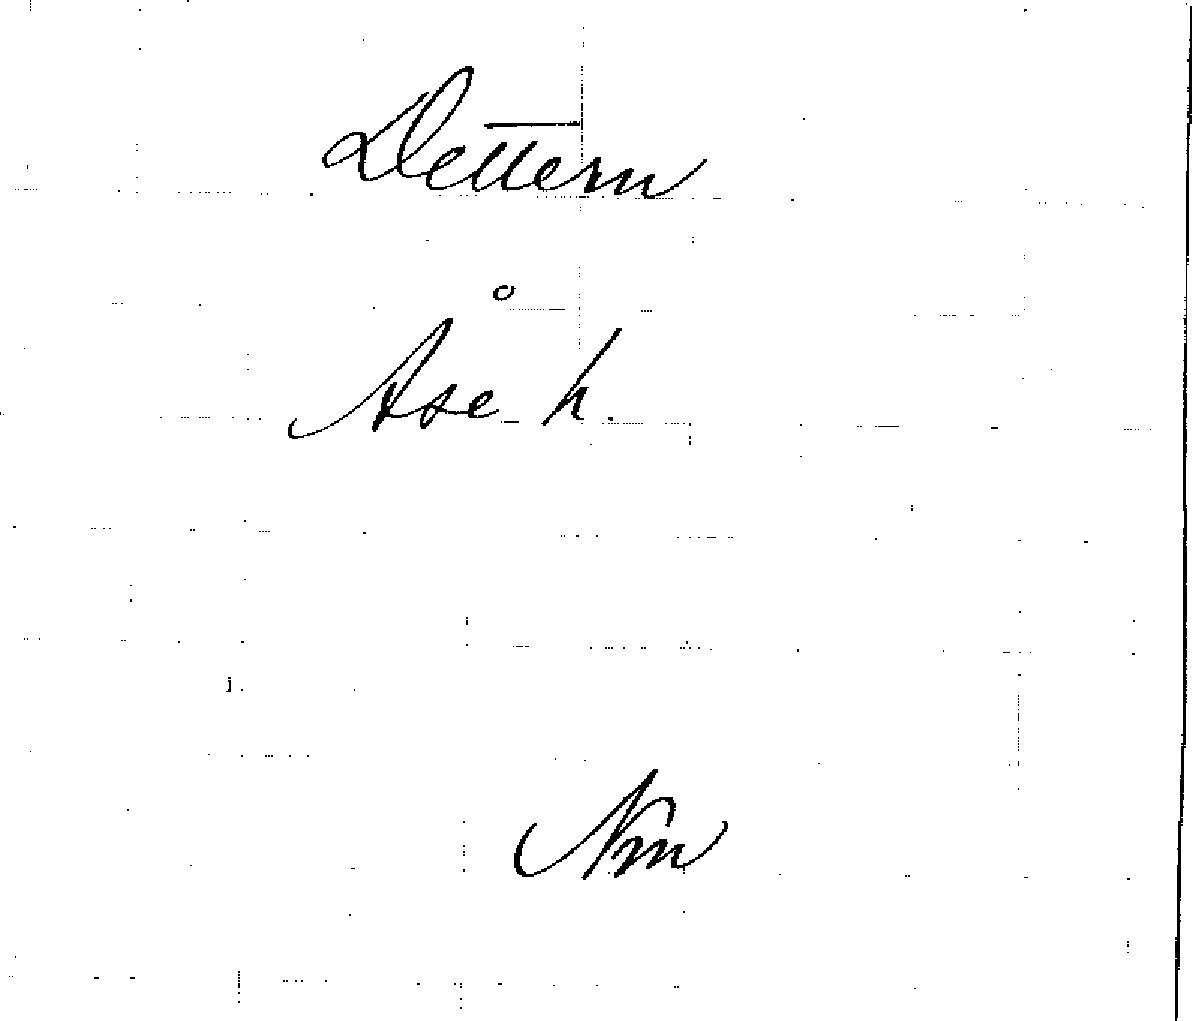 Dettern
Åse h.
Nm